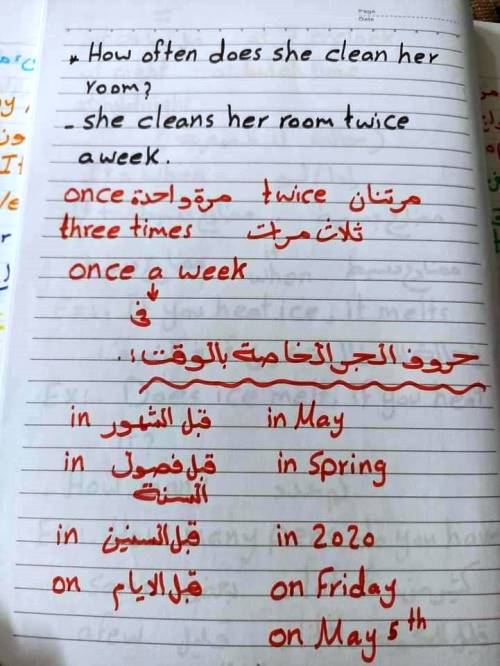 Page
Date
* How often does she clean her
room?
- she cleans her room twice
a week.
once مرة واحدة twice مرتنان
three times ثلاث مرات
once a week
↓
فى
حروف الجر الخاصة بالوقت:
in قبل الشهور in May
in قبل فصول in Spring
السنة
in قبل السنين in 2020
on قبل الايام on Friday
on May 5th